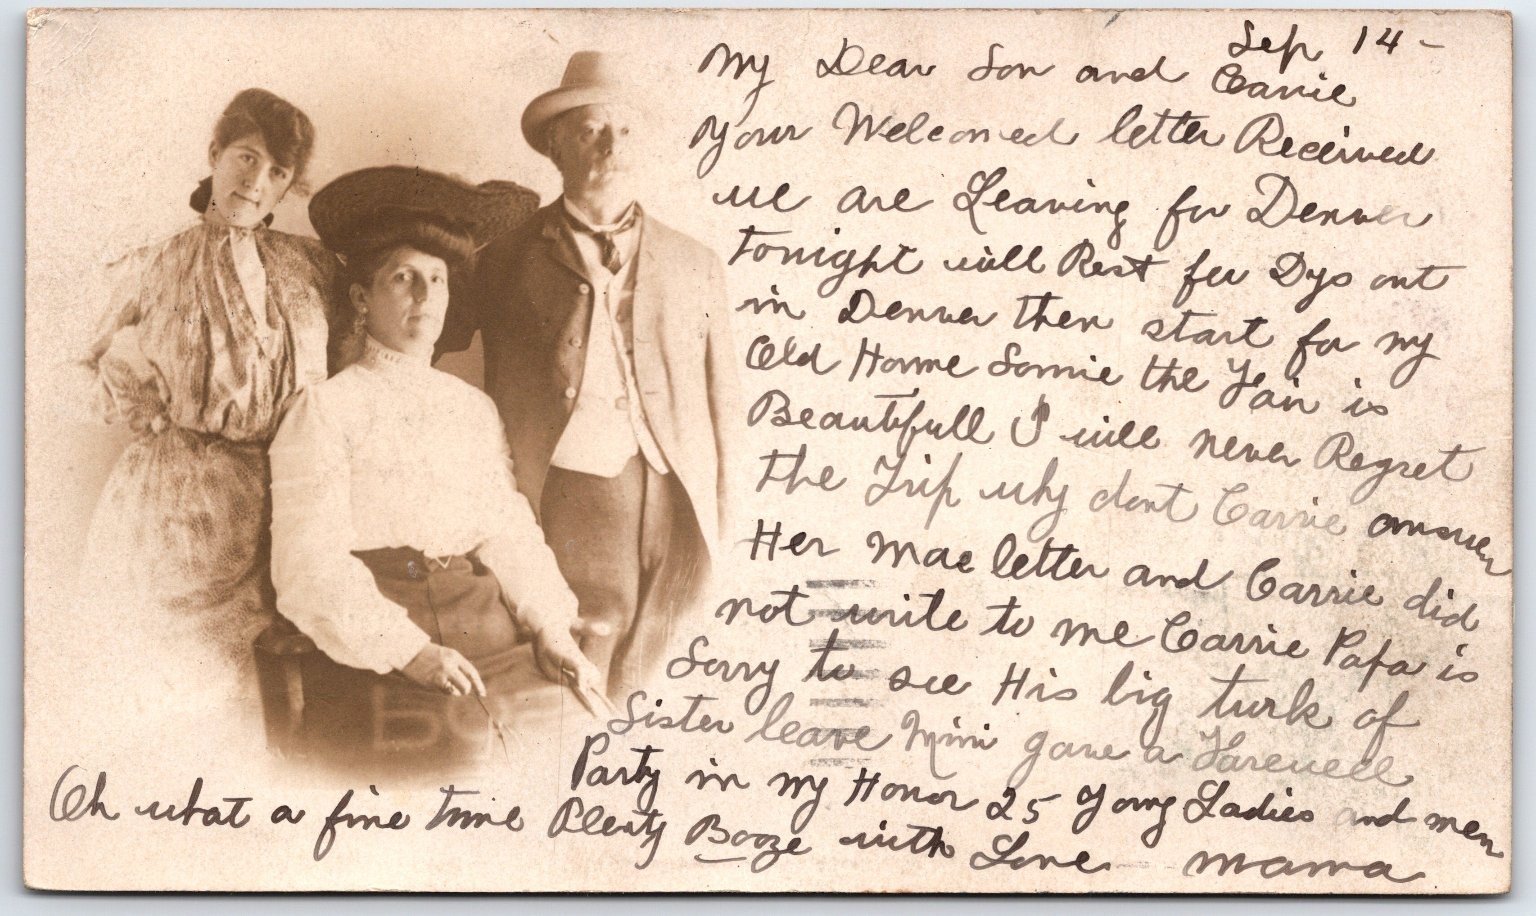 Sep 14 -
My Dear Son and Carrie
Your Welcomed letter Received
we are Leaving for Denver
tonight will Rest few Dys out
in Denver then start for my
Old Home Sonnie the Fair is
Beautifull I will never Regret
the Trip why dont Carrie answer
Her Mae letter and Carrie did
not write to me Carrie Papa is
Sorry to see His big turk of
Sister leave Mimi gave a Farewell
Party in my Honor 25 Young Ladies and men
Oh what a fine time Plenty Booze with Love - mama